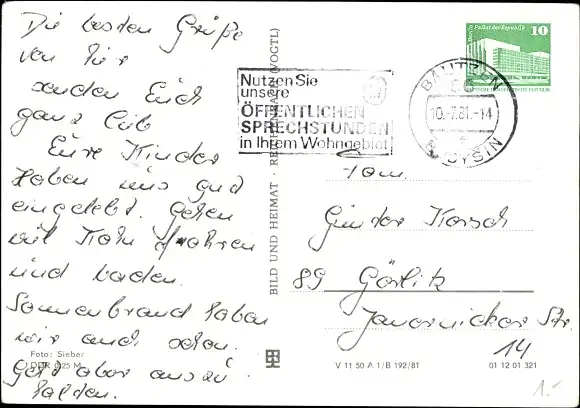 Die besten Grüße
von hier
senden Euch
ganz lieb
Eure Kinder
Haben uns gut
eingelebt. Gehen
viel Kahn fahren
und baden.
Sonnenbrand haben
wir auch schon.
Geht aber auszu-
halden.
Foto: Sieber
DDR 0,25 M
BILD UND HEIMAT · REICHENBACH (VOGTL)
Nutzen Sie
unsere
ÖFFENTLICHEN
SPRECHSTUNDEN
in Ihrem Wohngebiet
Berlin, Palast der Republik
10
DEUTSCHE DEMOKRATISCHE REPUBLIK
BAUTZEN
10.-7.81.-14
Fam.
Günter Korsch
89 Görlitz
Jauernicker Str.
14
V 11 50 A 1/B 192/81
01 12 01 321
1.-